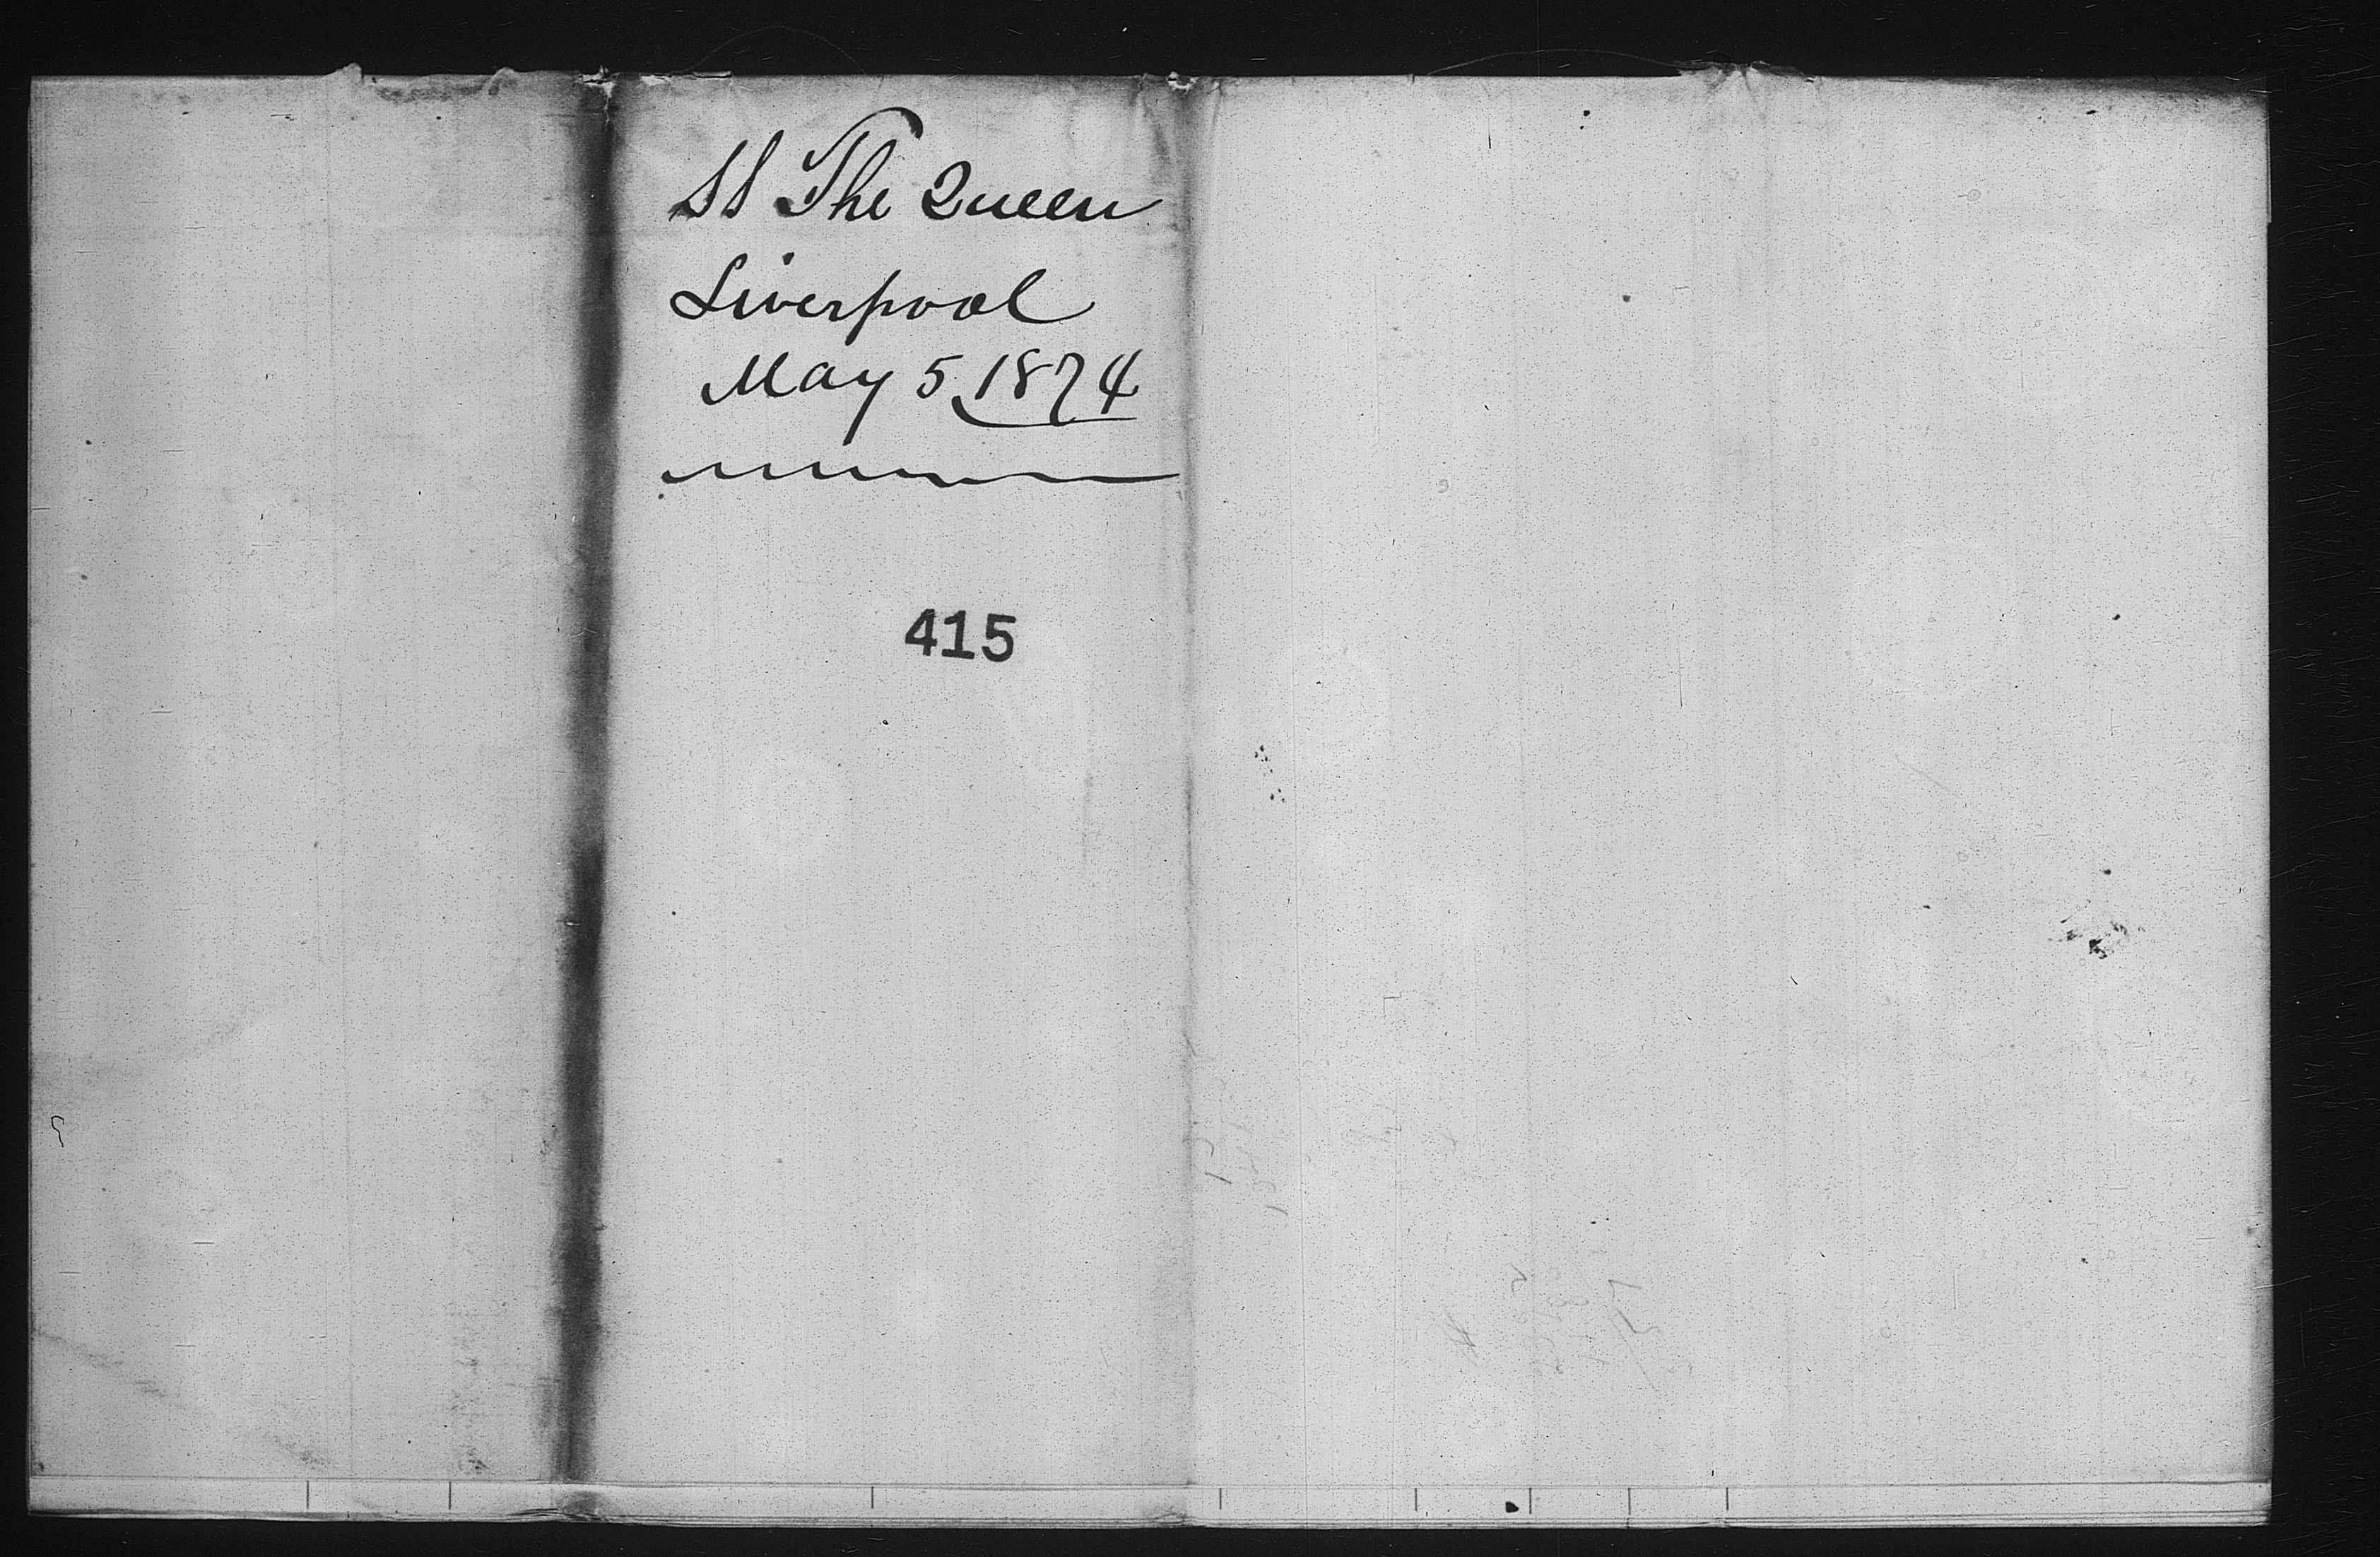 SS The Queen
Liverpool
May 5 1874
415